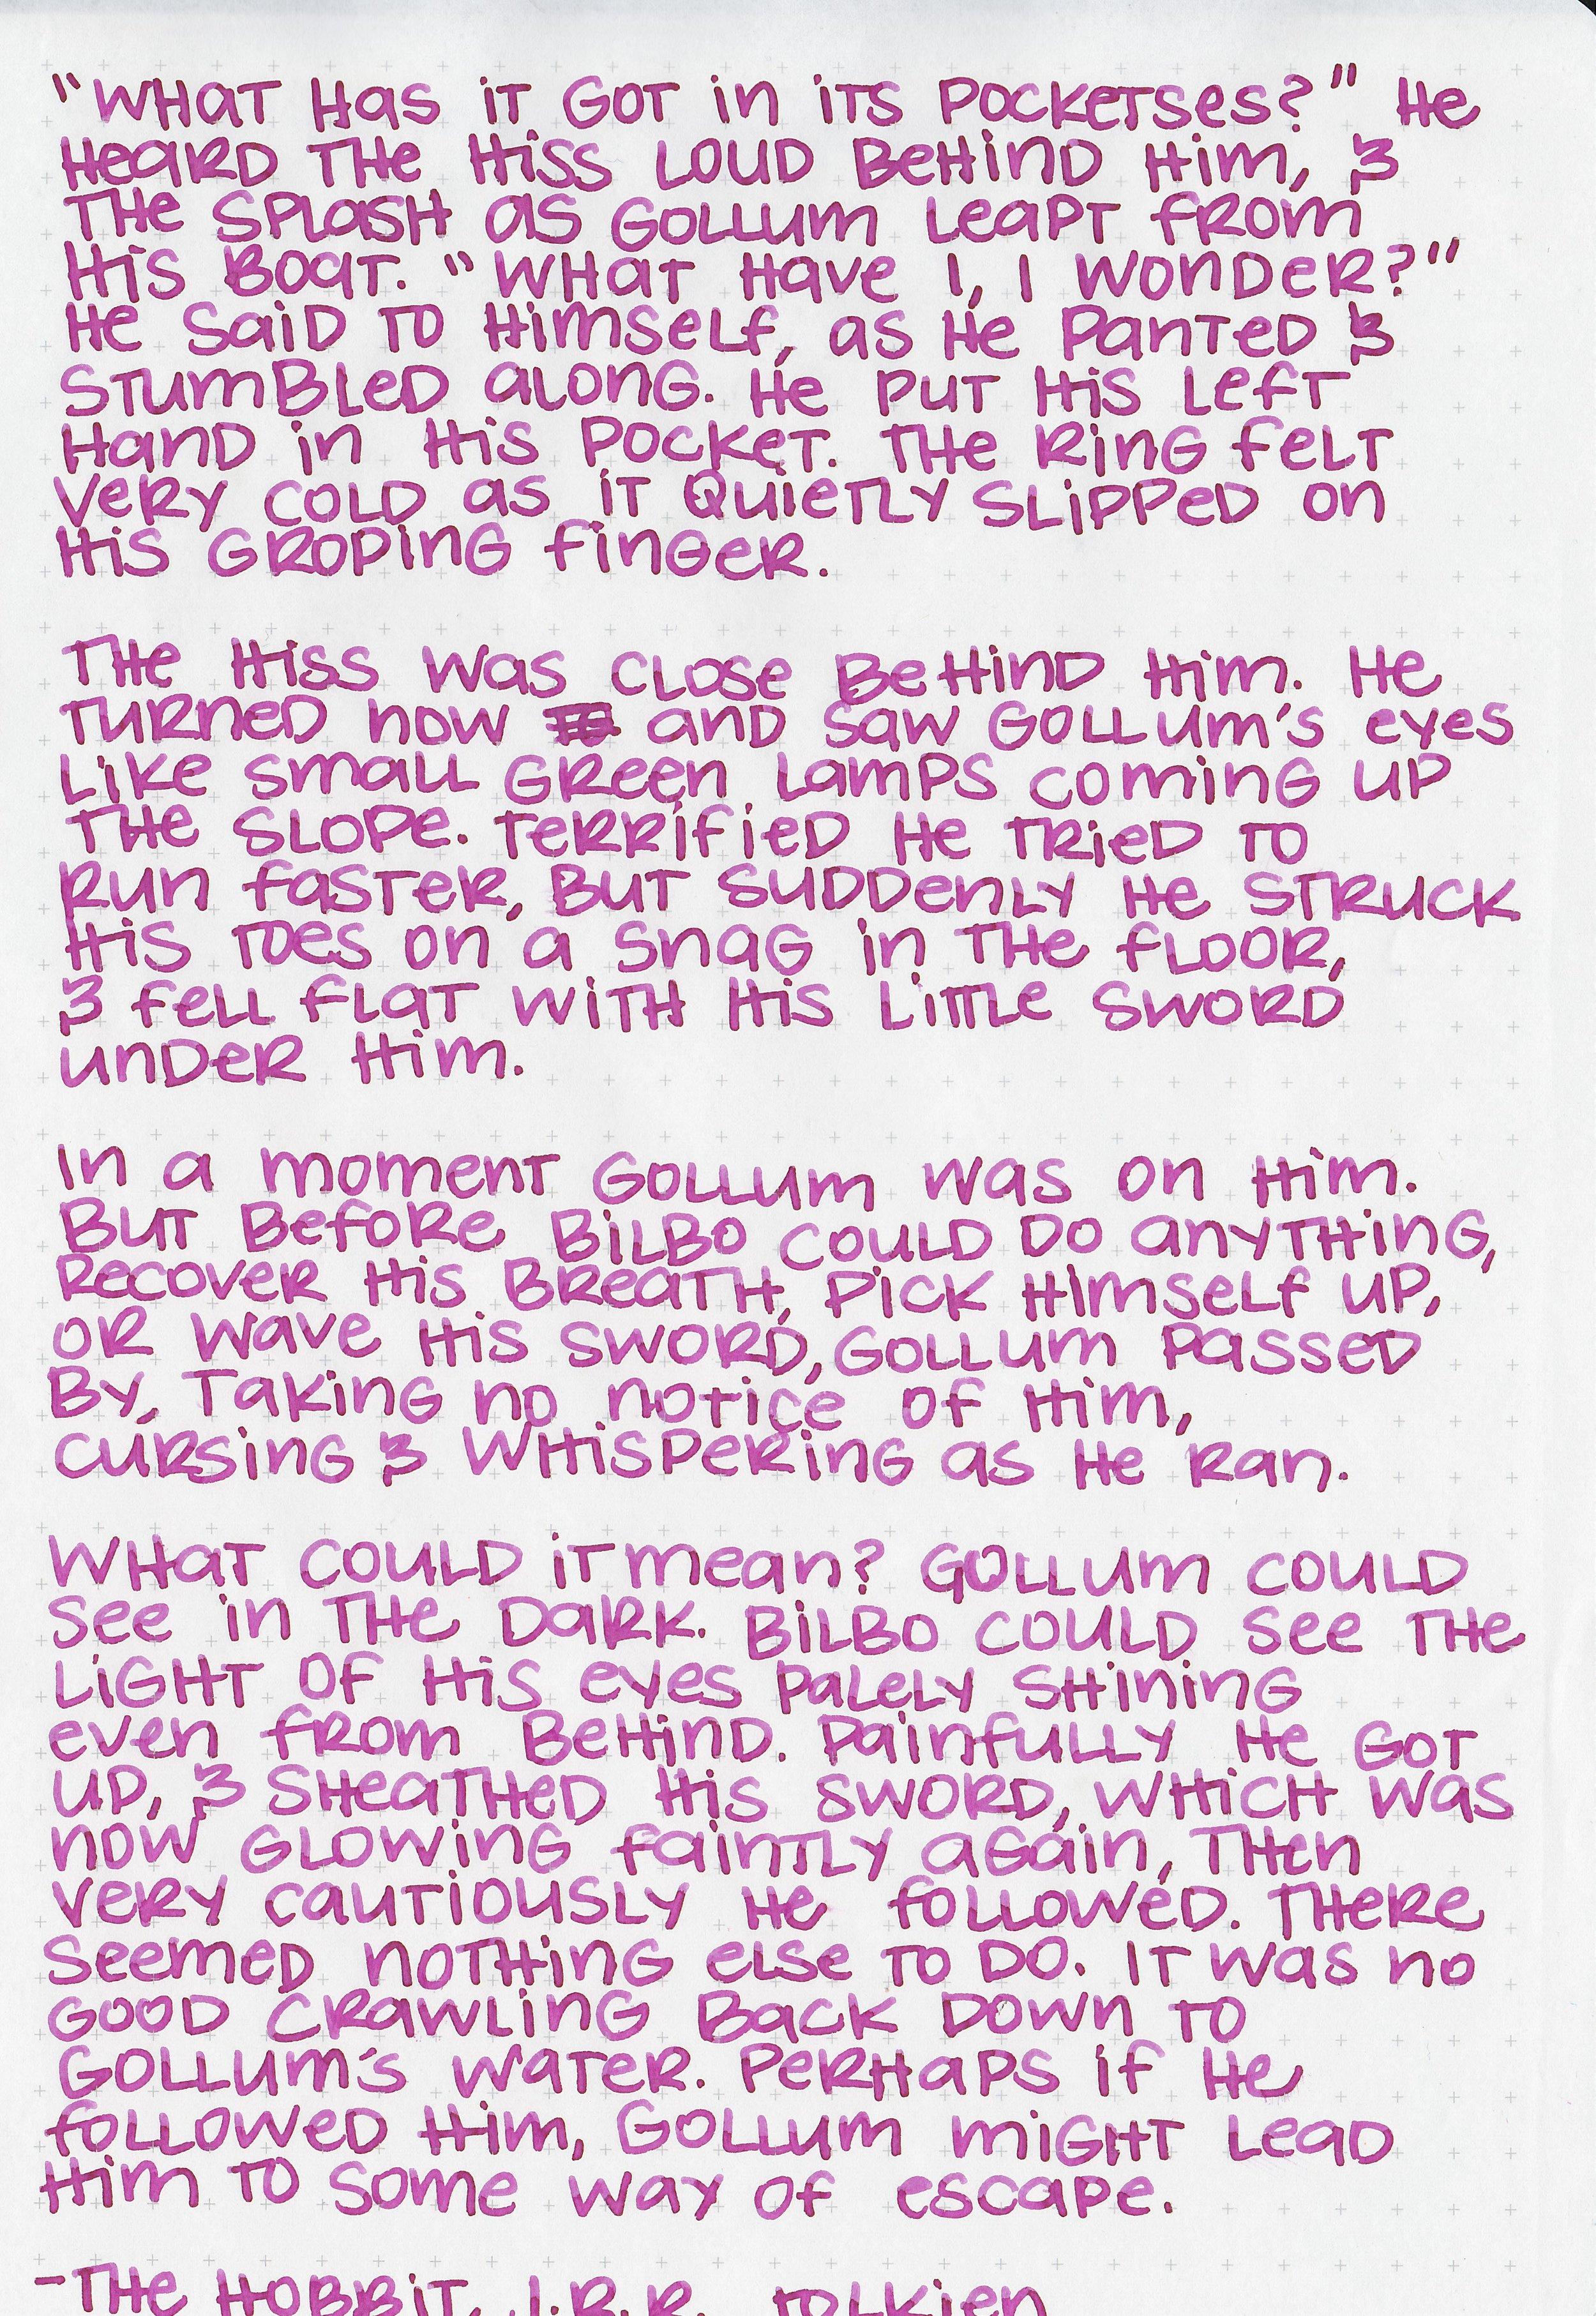 "What has it got in its pocketses?" He
heard the hiss loud behind him, &
the splash as Gollum leapt from
his boat. "What have I, I wonder?"
he said to himself, as he panted &
stumbled along. He put his left
hand in his pocket. The ring felt
very cold as it quietly slipped on
his groping finger.

The hiss was close behind him. He
turned now and saw Gollum's eyes
like small green lamps coming up
the slope. Terrified he tried to
run faster, but suddenly he struck
his toes on a snag in the floor,
& fell flat with his little sword
under him.

In a moment Gollum was on him.
But before Bilbo could do anything,
recover his breath, pick himself up,
or wave his sword, Gollum passed
by, taking no notice of him,
cursing & whispering as he ran.

What could it mean? Gollum could
see in the dark. Bilbo could see the
light of his eyes palely shining
even from behind. Painfully he got
up, & sheathed his sword, which was
now glowing faintly again, then
very cautiously he followed. There
seemed nothing else to do. It was no
good crawling back down to
Gollum's water. Perhaps if he
followed him, Gollum might lead
him to some way of escape.

-The Hobbit, J.R.R. Tolkien